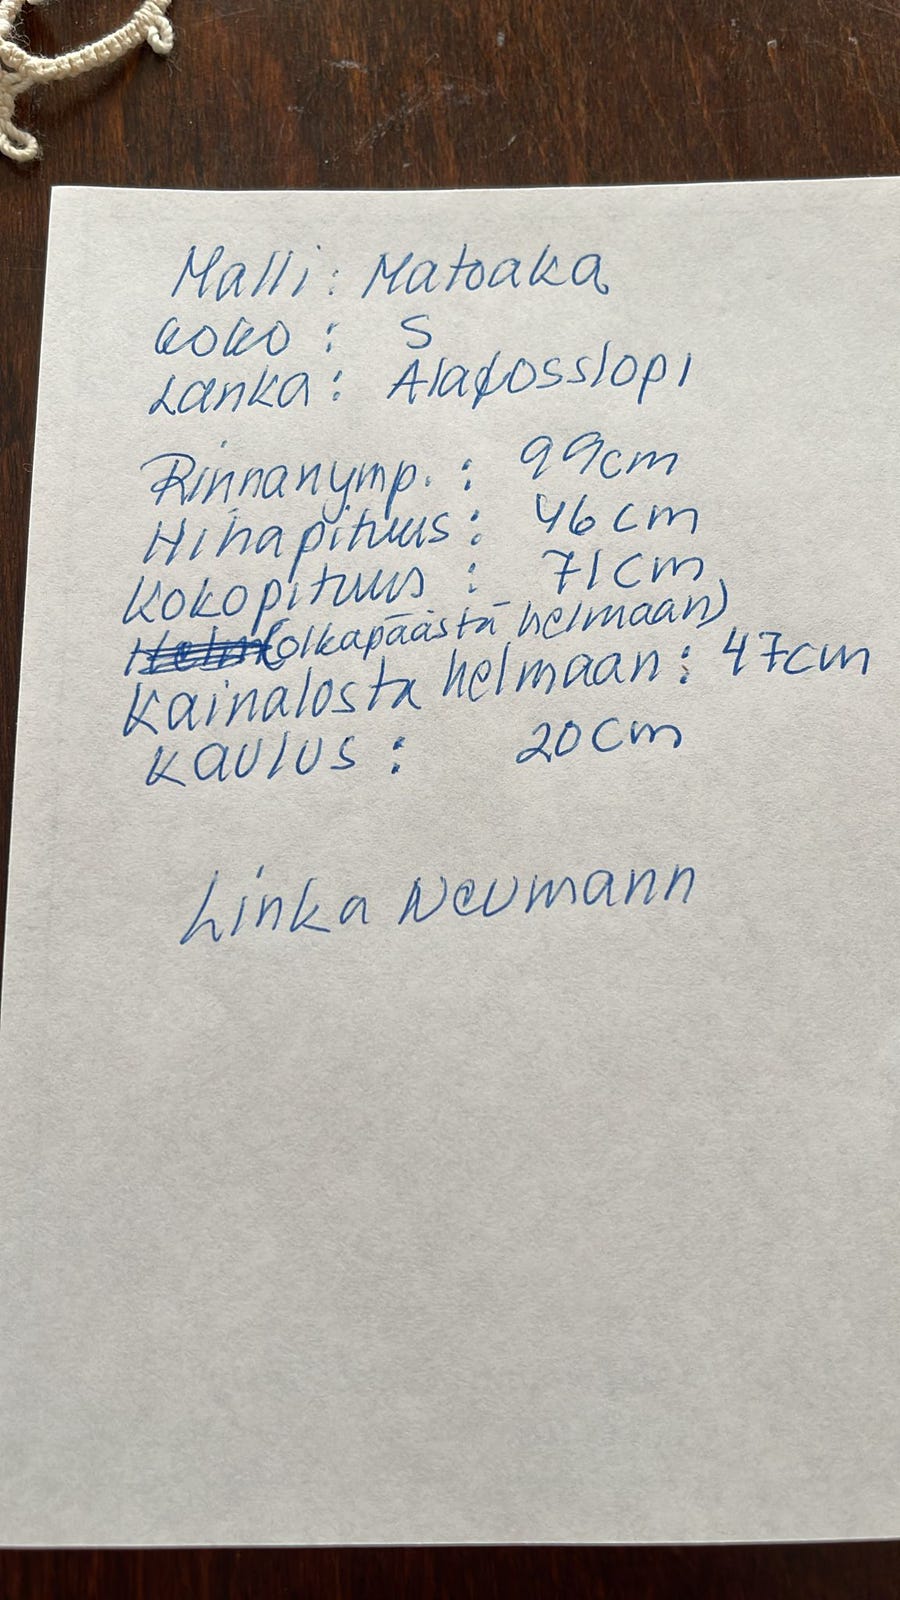 Malli: Matoaka
Koko: S
Lanka: Alafosslopi
Rinnanymp.: 99cm
Hihapituus: 46cm
Kokopituus: 71cm
(olkapäästä helmaan)
Kainalosta helmaan: 47cm
Kaulus: 20cm
Linka Neumann